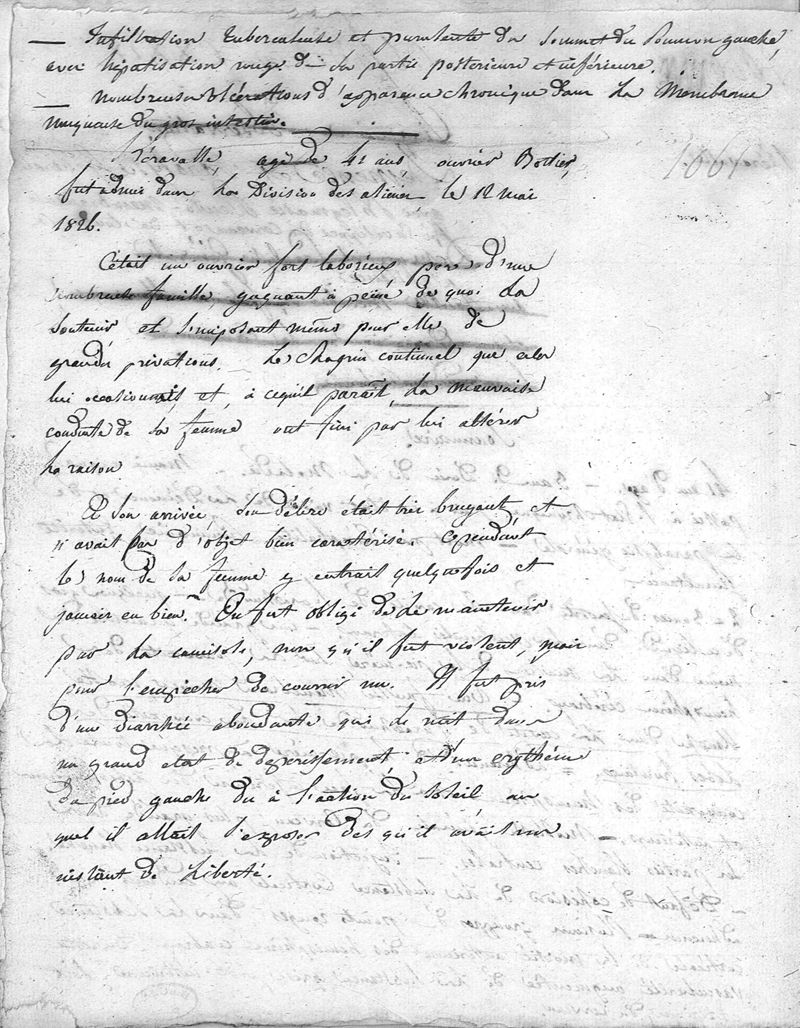 — Infiltration tuberculeuse et purulente du sommet du Poumon gauche,
avec hépatisation rouge de sa partie postérieure et inférieure.
— nombreuses ulcérations d'apparence chronique dans la Membrane
muqueuse du gros intestin.
agé de 41 ans ouvrier
fut admis dans la Division des aliénés le 12 mai
1826.
C'était un ouvrier fort laborieux père d'une
nombreuse famille, gagnant à peine de quoi la
soutenir et s'imposant même pour elle de
grandes privations. Le chagrin continuel que cela
lui occasionnait et, à cequ'il parait, la mauvaise
conduite de sa femme ont fini par lui altérer
la raison
A son arrivée, son délire était très bruyant et
n'avait pas d'objet bien caractérisé. Cependant
le nom de sa femme y entrait quelquefois et
jamais en bien. On fut obligé de le maintenir
par la camisole, non qu'il fut violent, mais
pour l'empêcher de courrir nu. Il fut pris
d'une diarrhée abondante qui le mit dans
un grand etat de deperissement, et d'un erythème
du pied gauche du à l'action du soleil au
quel il allait s'exposer dès qu'il avait un
instant de liberté.